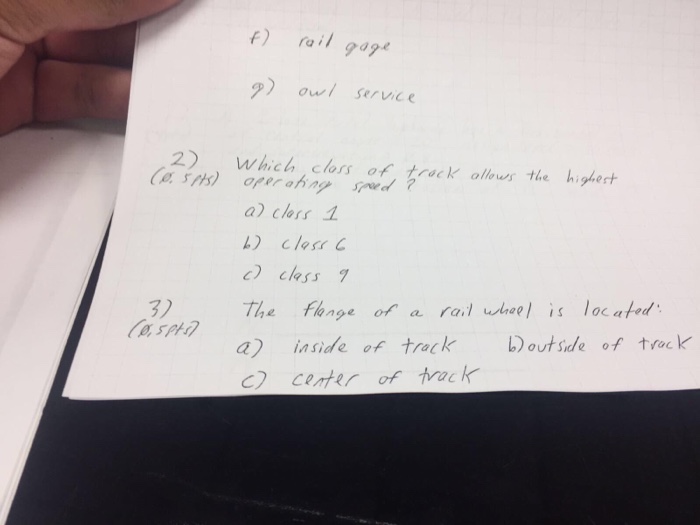 f) rail gage
g) owl service
2) Which class of track allows the highest
(0.5pts) operating speed?
a) class 1
b) class 6
c) class 9
3) The flange of a rail wheel is located:
(0.5pts)
a) inside of track b) outside of track
c) center of track